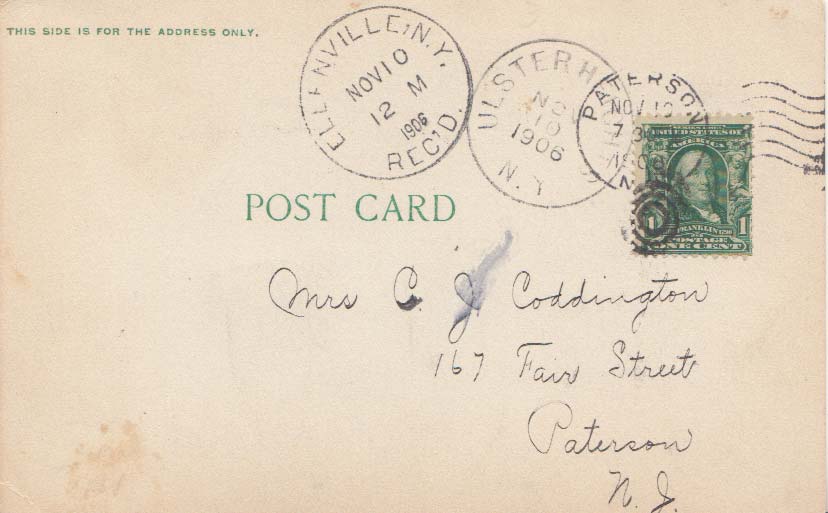 THIS SIDE IS FOR THE ADDRESS ONLY.
ELLENVILLE, N.Y.
NOV 10
12 M
1906
REC'D.
ULSTER H
NOV
10
1906
N.Y.
PATERSON
NOV 10
7 30
N
SERIES 1902
UNITED STATES OF
AMERICA
FRANKLIN 1790
1 1
POSTAGE
ONE CENT
POST CARD
Mrs C. J. Coddington
167 Fair Street
Paterson
N. J.